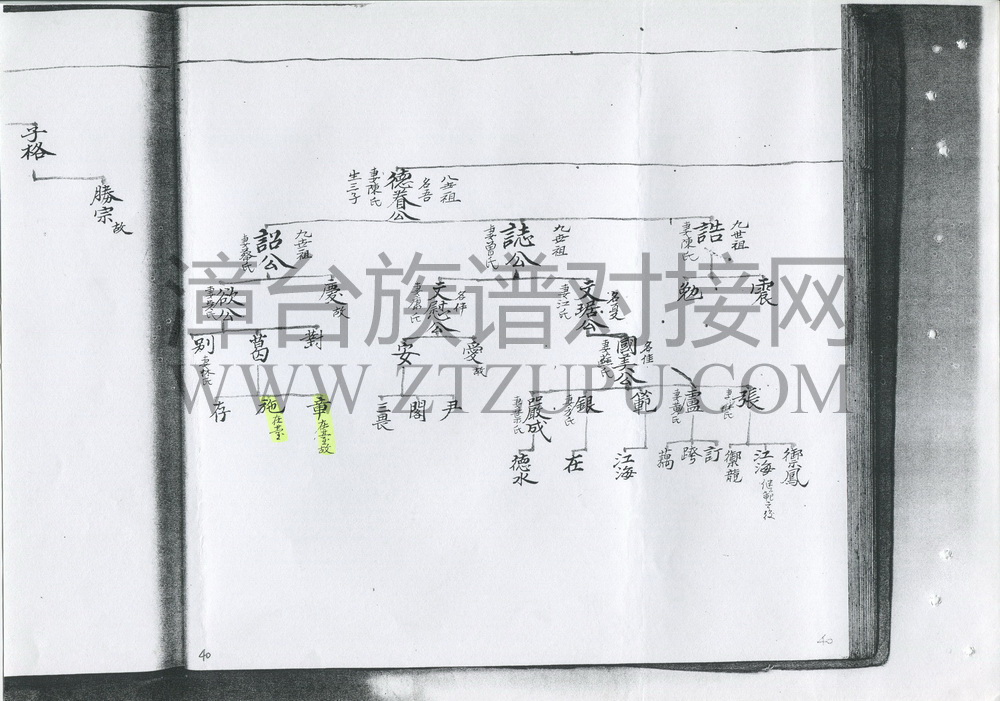 八世祖
名吾
德眷公
妻陳氏
生三子
九世祖
誥
妻陳氏
九世祖
誌公
妻曾氏
九世祖
詔公
妻蔡氏
震
勉
文琚公
妻江氏
名伴
文慰公
慶 故
欲公
名佳
國美公
妻蘇氏
愛 故
安
對
葛
别
妻林氏
張
妻林氏
盧
妻黄氏
範
銀
妻方氏
嚴成
尹
閣
三畏
章 在臺故
施 在臺
存
御鳳
江海 繼範之後
禦龍
訂
跨
藕
江海
在
德水
子格
勝宗 故
40
40
漳台族谱对接网
WWW.ZTZUPU.COM